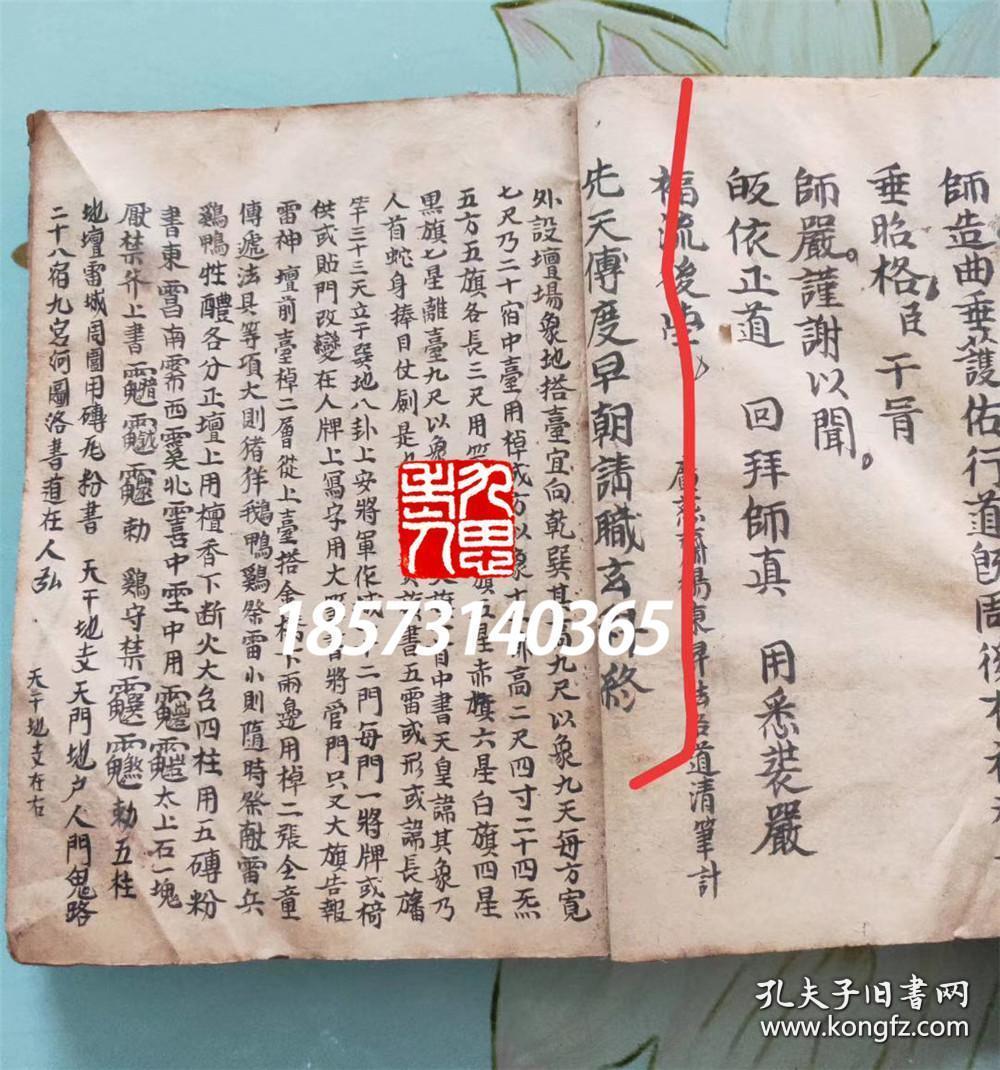 師造曲垂護佑行道既周
垂昭格臣 干冐
師嚴。謹謝以聞。
皈依正道 回拜師真 用悉裝嚴
福流後
道清筆計
先天傳度早朝請職玄 終
外設壇場象地搭臺宜向乾巽其 九尺以象九天每方寬
七尺乃二十宿中臺用棹 方以象 高二尺四寸二十四炁
五方五旗各長三尺用 旗 星赤旗六星白旗四星
黑旗七星離臺九尺以象 中書天皇諱其象乃
人首蛇身捧目仗劍是 書五雷或形或諱長旛
竿三十三天立于巽地八卦上安將軍作 二門每門一將牌或椅
供或貼門改變在人牌上寫字用大 將管門只又大旗告報
雷神壇前臺棹二層從上臺搭金橋下兩邊用棹二張仝童
傳遞法具等項大則猪羊鵝鴨鷄祭雷小則隨時祭献雷兵
鷄鴨牲醴各分正壇上用檀香下断火大台四柱用五磚粉
書東 南 西 北 中 中用 太上石一塊
厭禁 上書 勅 鷄守禁 勅五柱
地壇雷城周圍用磚瓦粉書 天干地支天門地户人門鬼路
二十八宿九宮河圖洛書道在人弘
天干地支在右
九思
18573140365
孔夫子旧书网
www.kongfz.com